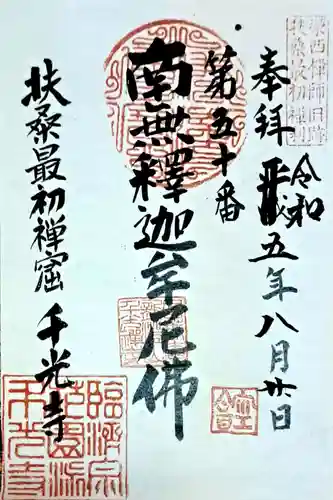 奉拝 令和五年八月廿日
第五十番
南無釋迦牟尼佛
扶桑最初禅窟 千光寺
扶桑最初禅窟
臨済宗
千光寺